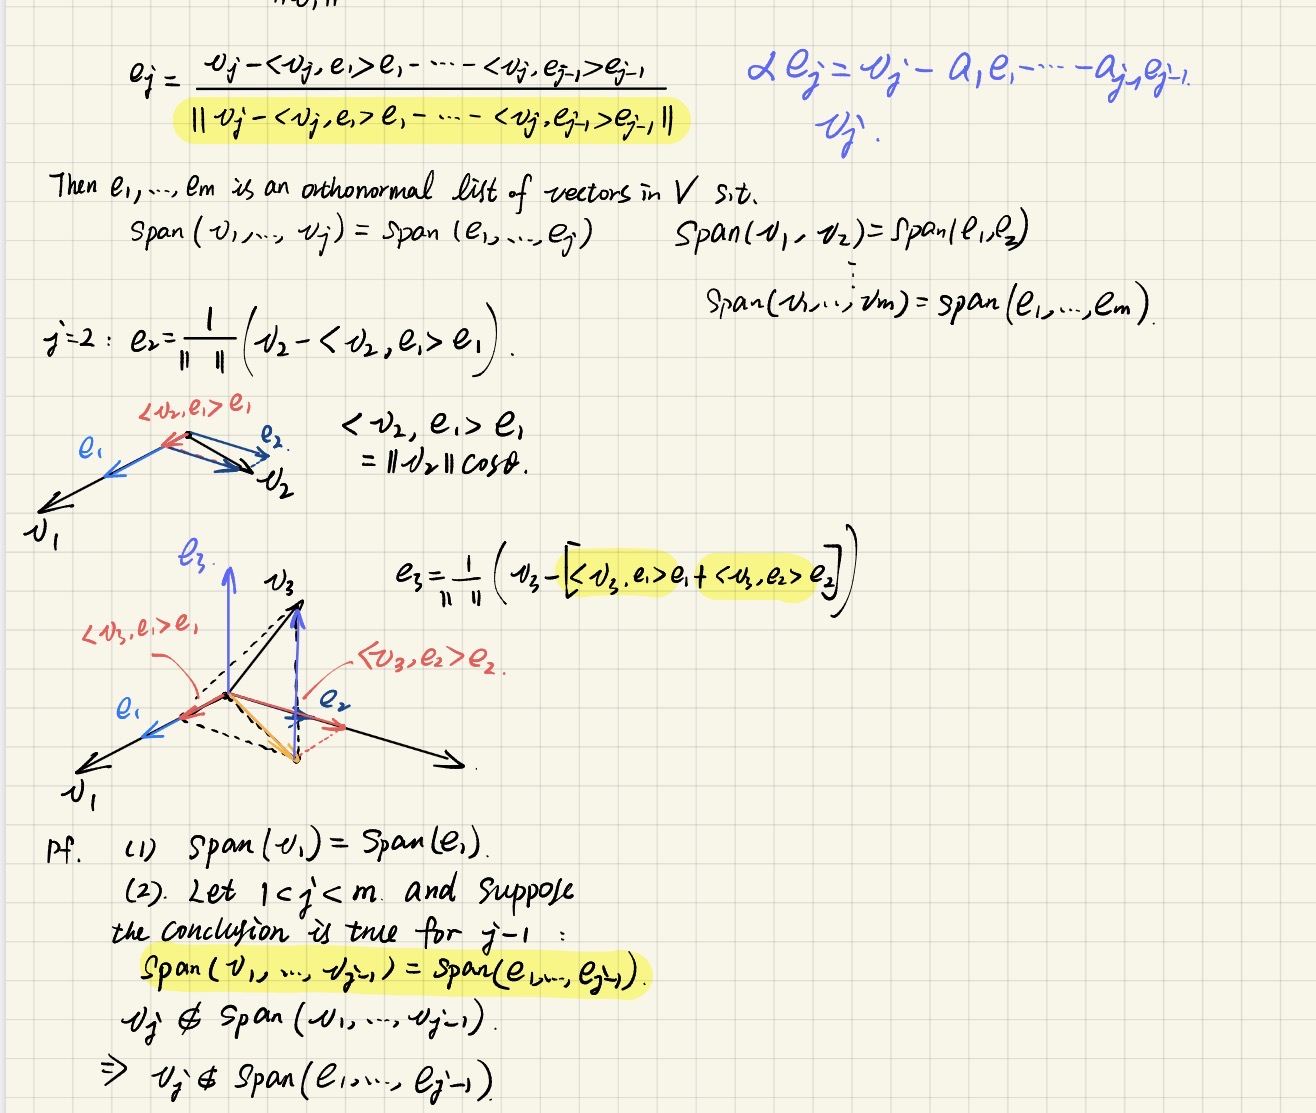 e_j = (v_j - <v_j, e_1> e_1 - ... - <v_j, e_{j-1}> e_{j-1}) / || v_j - <v_j, e_1> e_1 - ... - <v_j, e_{j-1}> e_{j-1} ||
α e_j = v_j - a_1 e_1 - ... - a_{j-1} e_{j-1}.
v_j.
Then e_1, ..., e_m is an orthonormal list of vectors in V s.t.
span(v_1, ..., v_j) = span(e_1, ..., e_j)
span(v_1, v_2) = span(e_1, e_2)
⋮
span(v_1, ..., v_m) = span(e_1, ..., e_m).
j=2 : e_2 = 1/|| || (v_2 - <v_2, e_1> e_1).
<v_2, e_1> e_1
e_1
e_2.
v_2
v_1
<v_2, e_1> e_1
= ||v_2|| cosθ.
e_3 = 1/|| || (v_3 - [<v_3, e_1> e_1 + <v_3, e_2> e_2])
e_3.
v_3
<v_3, e_1> e_1
<v_3, e_2> e_2.
e_1
e_2
v_1
Pf. (1) span(v_1) = span(e_1).
(2). Let 1 < j < m. and suppose
the conclusion is true for j-1 :
span(v_1, ..., v_{j-1}) = span(e_1, ..., e_{j-1}).
v_j ∉ span(v_1, ..., v_{j-1}).
⇒ v_j ∉ span(e_1, ..., e_{j-1}).